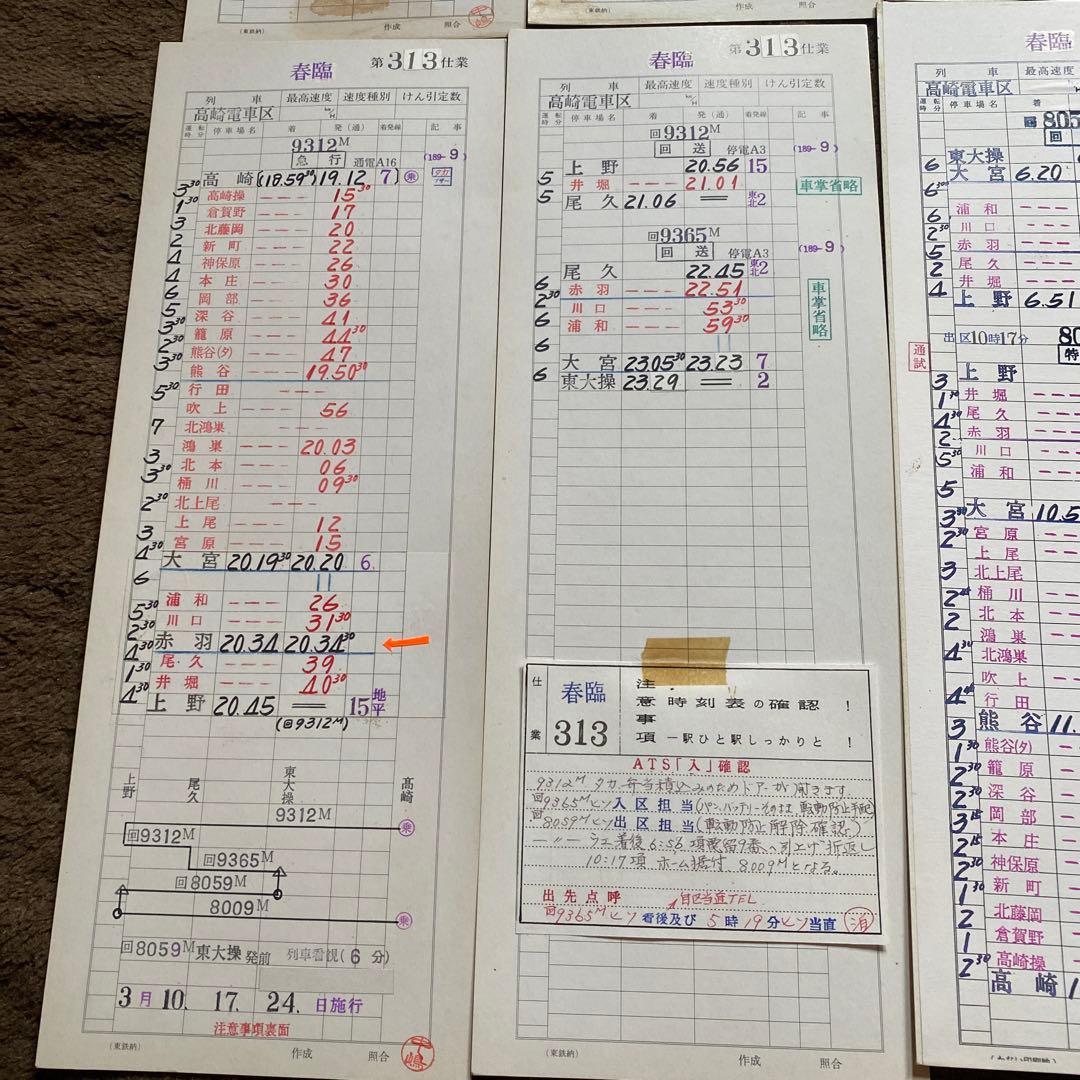 (東鉄納) 作成 照合
作成 照合
春臨 第313仕業
列車 最高速度 速度種別 けん引定数
高崎電車区 km/H
運転時分 停車場名 着 発(通) 着発線 記事
9312M
急行 通電A16 (189-9)
高崎 (18.5930) 19.12 7 乗
330 高崎操 --- 1530
130 倉賀野 --- 17
3 北藤岡 --- 20
2 新町 --- 22
4 神保原 --- 26
4 本庄 --- 30
6 岡部 --- 36
5 深谷 --- 41
330 籠原 --- 4430
230 熊谷(タ) --- 47
330 熊谷 --- 19.5030
行田 ---
530 吹上 --- 56
北鴻巣 ---
7 鴻巣 --- 20.03
3 北本 --- 06
330 桶川 --- 0930
北上尾 ---
230 上尾 --- 12
3 宮原 --- 15
430 大宮 20.1930 20.20 6
6 浦和 --- 26
530 川口 --- 3130
230 赤羽 20.34 20.3430
430 尾久 --- 39
130 井堀 --- 4030
430 上野 20.45 == 15 地平
(回9312M)
上野 尾久 東大操 高崎
9312M 乗
回9312M
回9365M
回8059M
8009M 乗
回8059M 東大操発前 列車看視(6分)
3月10. 17. 24. 日施行
注意事項裏面
(東鉄納) 作成 照合
春臨 第313仕業
列車 最高速度 速度種別 けん引定数
高崎電車区 km/H
運転時分 停車場名 着 発(通) 着発線 記事
回9312M
回送 停電A3 (189-9)
上野 20.56 15
5 井堀 --- 21.01 車掌省略
5 尾久 21.06 == 東北2
回9365M
回送 停電A3 (189-9)
尾久 22.45 東北2
6 赤羽 --- 22.51 車掌省略
230 川口 --- 5330
6 浦和 --- 5930
6 大宮 23.0530 23.23 7
6 東大操 23.29 == 2
仕業 春臨 313
注意事項 時刻表の確認!
一駅ひと駅しっかりと!
ATS「入」確認
9312M タカ 弁当積込みのためドアーが開きます
回9365Mヒソ 入区担当(パン、バッテリーそのまま 転動防止手配)
回8059Mヒソ 出区担当(転動防止解除確認)
―〃― ウエ着後6:56頃 9番へ引上げ折返し
10:17頃 ホーム据付 8009Mとなる。
出先点呼 自区当直TEL
回9365Mヒソ 着後及び 5時19分ヒソ当直 泊
(東鉄納) 作成 照合
春臨
列車 最高速度
高崎電車区
運転時分 停車場名 着
回 805
回
東大操
6 大宮 6.20
630
6 浦和 ---
230 川口 ---
5 赤羽 ---
2 尾久 ---
井堀 ---
4 上野 6.51
出区10時17分 80
通試 特
上野
3 井堀 ---
尾久 ---
430 赤羽 ---
2 川口 ---
530 浦和 ---
5 大宮 10.5
330 宮原 ---
230 上尾 ---
3 北上尾
桶川
2 北本
鴻巣
430 北鴻巣
吹上
行田
3 熊谷 11.
130 熊谷(タ)
230 籠原
230 深谷
315 岡部
215 本庄
230 神保原
130 新町
2 北藤岡
1 倉賀野
230 高崎操
高崎 1